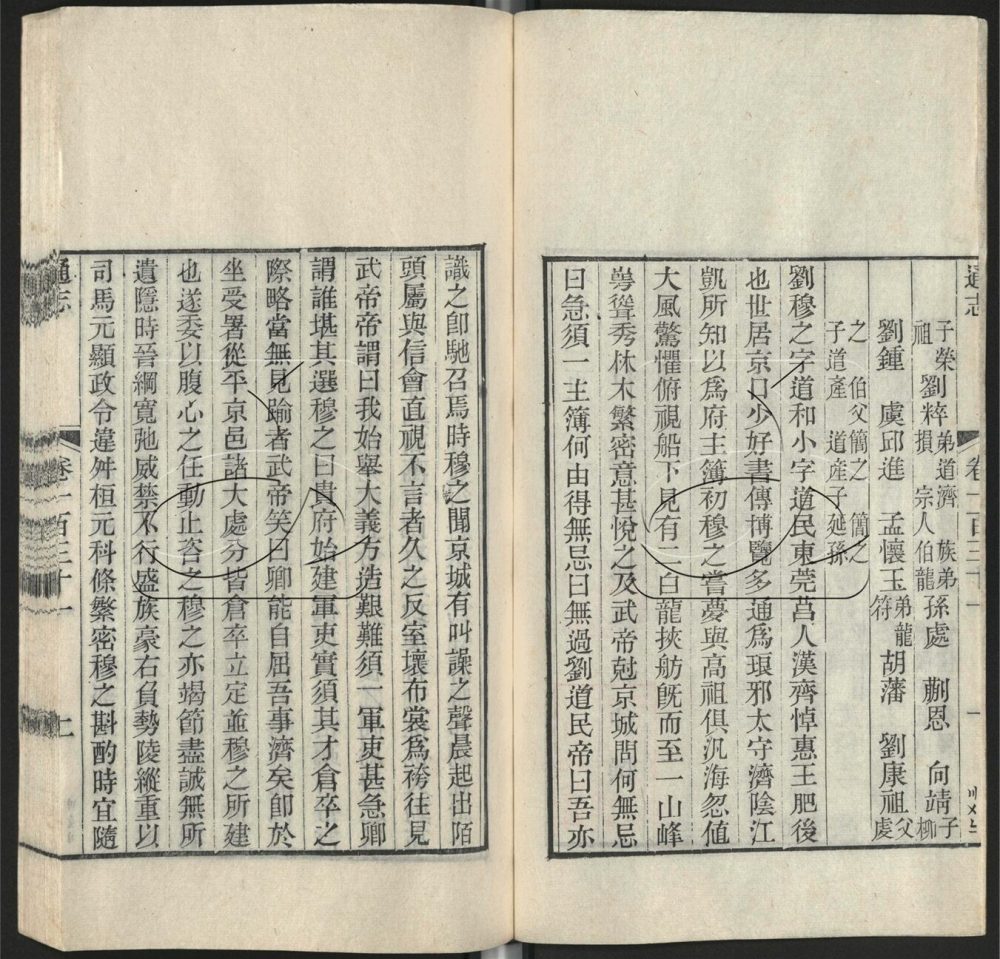 通志
卷一百三十一
一
子榮祖 劉粹 弟道濟損 族弟 宗人伯龍 孫處 蒯恩 向靖 子柳
劉鍾 虞邱進 孟懷玉 弟龍符 胡藩 劉康祖 父虔
之 伯父簡之 簡之
子道產 道產子延孫
劉穆之字道和小字道民東莞莒人漢齊悼惠王肥後
也世居京口少好書傳博覽多通爲琅邪太守濟陰江
凱所知以爲府主簿初穆之嘗夢與高祖俱汎海忽値
大風驚懼俯視船下見有二白龍挾舫旣而至一山峰
崿聳秀林木繁密意甚悅之及武帝尅京城問何無忌
曰急須一主簿何由得無忌曰無過劉道民帝曰吾亦
識之卽馳召焉時穆之聞京城有叫譟之聲晨起出陌
頭屬與信會直視不言者久之反室壞布裳爲袴往見
武帝帝謂曰我始舉大義方造艱難須一軍吏甚急卿
謂誰堪其選穆之曰貴府始建軍吏實須其才倉卒之
際略當無見踰者武帝笑曰卿能自屈吾事濟矣卽於
坐受署從平京邑諸大處分皆倉卒立定並穆之所建
也遂委以腹心之任動止咨之穆之亦竭節盡誠無所
遺隱時晉綱寬弛威禁不行盛族豪右負勢陵縱重以
司馬元顯政令違舛桓元科條繁密穆之斟酌時宜隨
通志
卷一百三十一